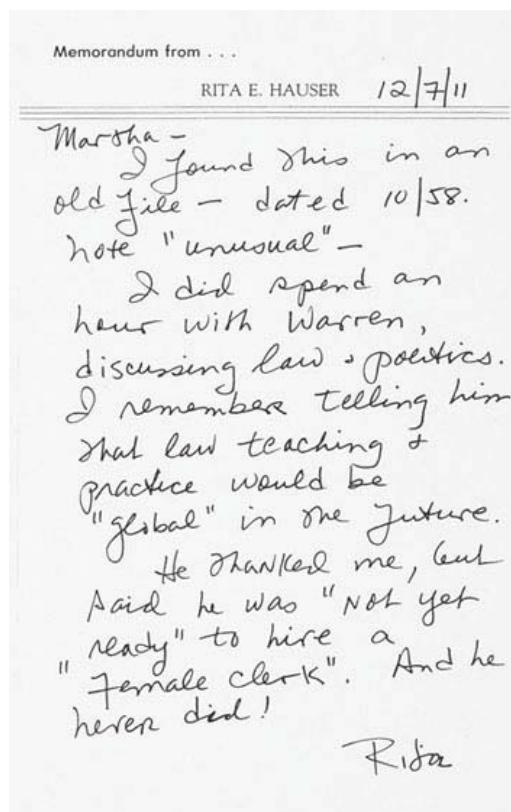 Memorandum from . . .
RITA E. HAUSER 12/7/11
Martha –
I found this in an
old file – dated 10/58.
note "unusual" –
I did spend an
hour with Warren,
discussing law & politics.
I remember telling him
that law teaching &
practice would be
"global" in the future.
He thanked me, but
said he was "not yet
ready" to hire a
"female clerk". And he
never did!
Rita